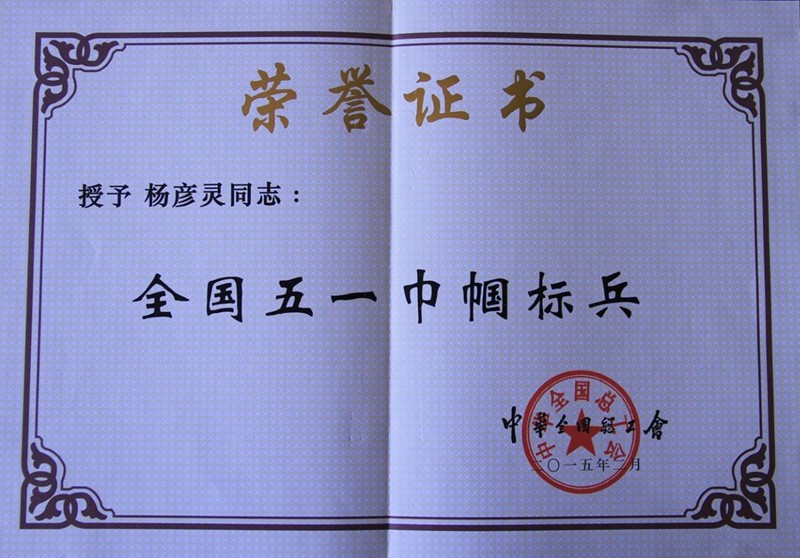 荣誉证书
授予 杨彦灵同志：
全国五一巾帼标兵
中華全国總工會
二〇一五年二月